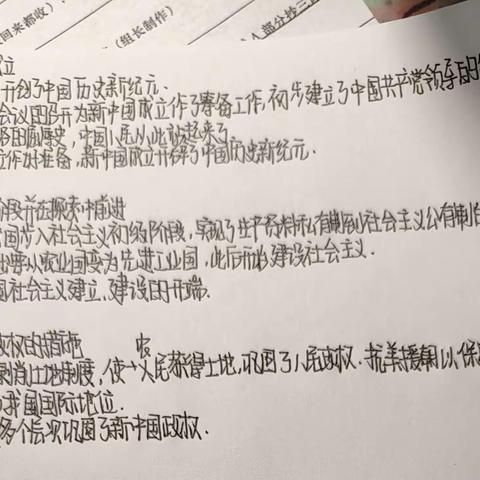 回来都收)
(组长制作)
部分抄三
位
开创了中国历史新纪元.
会议图召开为新中国成立作了筹备工作,初步建立了中国共产党领导的
的历史,中国人民从此站起来了.
作好准备,新中国成立开辟了中国历史新纪元.
阶段并在探索中前进
国步入社会主义初级阶段,实现了生产资料私有制到社会主义公有制
出要从农业国变为先进工业国,此后开始建设社会主义.
国社会主义建立、建设的开端.
政权的措施
农
剥削土地制度,使广大人民获得土地,巩固了人民政权.抗美援朝以保
我国国际地位.
多个层次巩固了新中国政权.